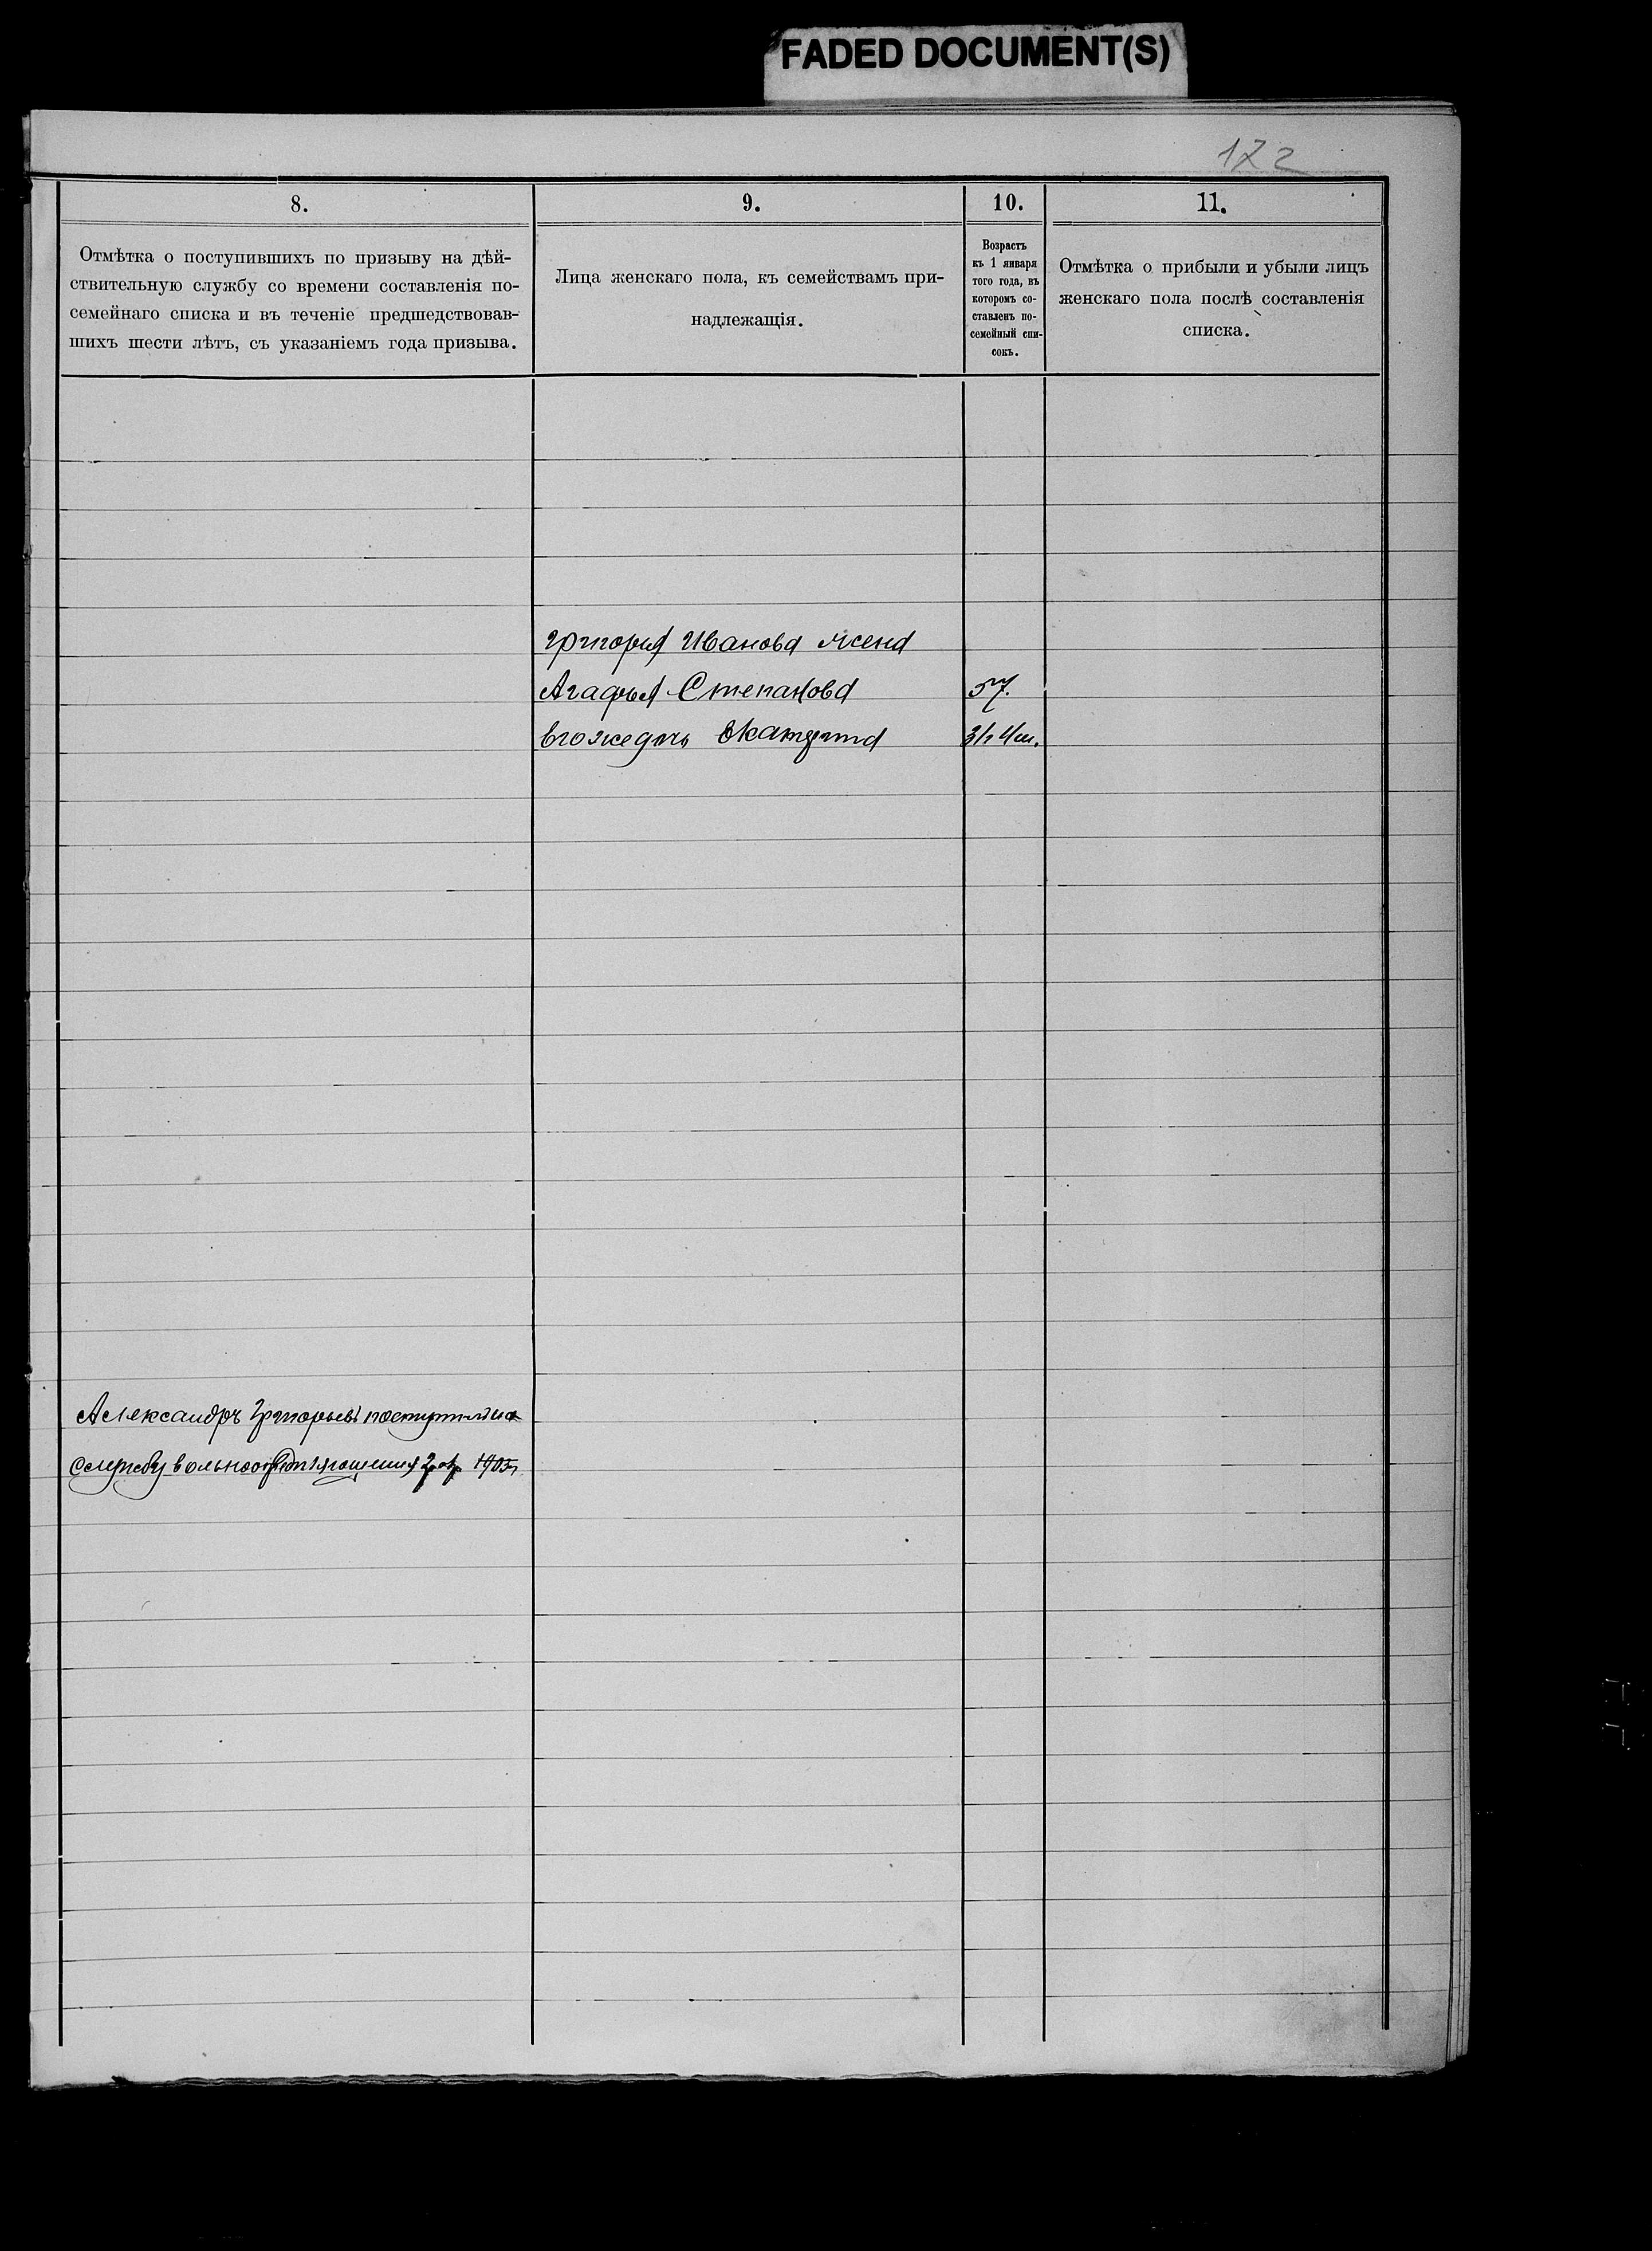 FADED DOCUMENT(S)
172
8.
9.
10.
11.
Отмѣтка о поступившихъ по призыву на дѣй-
ствительную службу со времени составленія по-
семейнаго списка и въ теченіе предшедствовав-
шихъ шести лѣтъ, съ указаніемъ года призыва.
Лица женскаго пола, къ семействамъ при-
надлежащія.
Возрастъ
къ 1 января
того года, въ
которомъ со-
ставленъ по-
семейный спи-
сокъ.
Отмѣтка о прибыли и убыли лицъ
женскаго пола послѣ составленія
списка.
Григорія Иванова жена
Агафья Степанова 57.
Его же дочь Екатерина
Александръ Григорьевъ поступилъ на
службу 1905